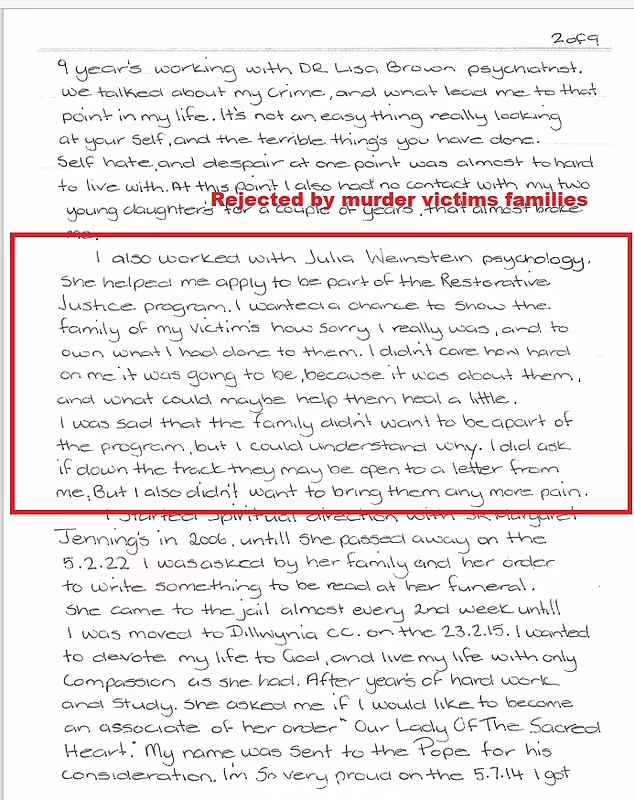 2 of 9
9 year's working with DR Lisa Brown psychiatrist.
we talked about my crime, and what lead me to that
point in my life. It's not an easy thing really looking
at your self, and the terrible thing's you have done.
Self hate, and despair at one point was almost to hard
to live with. At this point I also had no contact with my two
Rejected by murder victims families
young daughter's for a couple of years, that almost broke
me.
I also worked with Julia Weinstein psychology.
She helped me apply to be part of the Restorative
Justice program. I wanted a chance to show the
family of my victim's how sorry I really was, and to
own what I had done to them. I didn't care how hard
on me it was going to be, because it was about them,
and what could maybe help them heal a little.
I was sad that the family didn't want to be apart of
the program, but I could understand why. I did ask
if down the track they may be open to a letter from
me, But I also didn't want to bring them any more pain.
I started spiritual direction with SR Margaret
Jenning's in 2006, untill She passed away on the
5.2.22 I was asked by her family and her order
to write something to be read at her funeral.
She came to the jail almost every 2nd week untill
I was moved to Dillwynia CC. on the 23.2.15. I wanted
to devote my life to God, and live my life with only
Compassion as she had. After years of hard work
and Study. She asked me if I would like to become
an associate of her order "Our Lady Of The Sacred
Heart." My name was sent to the Pope for his
consideration. I'm So very proud on the 5.7.14 I got